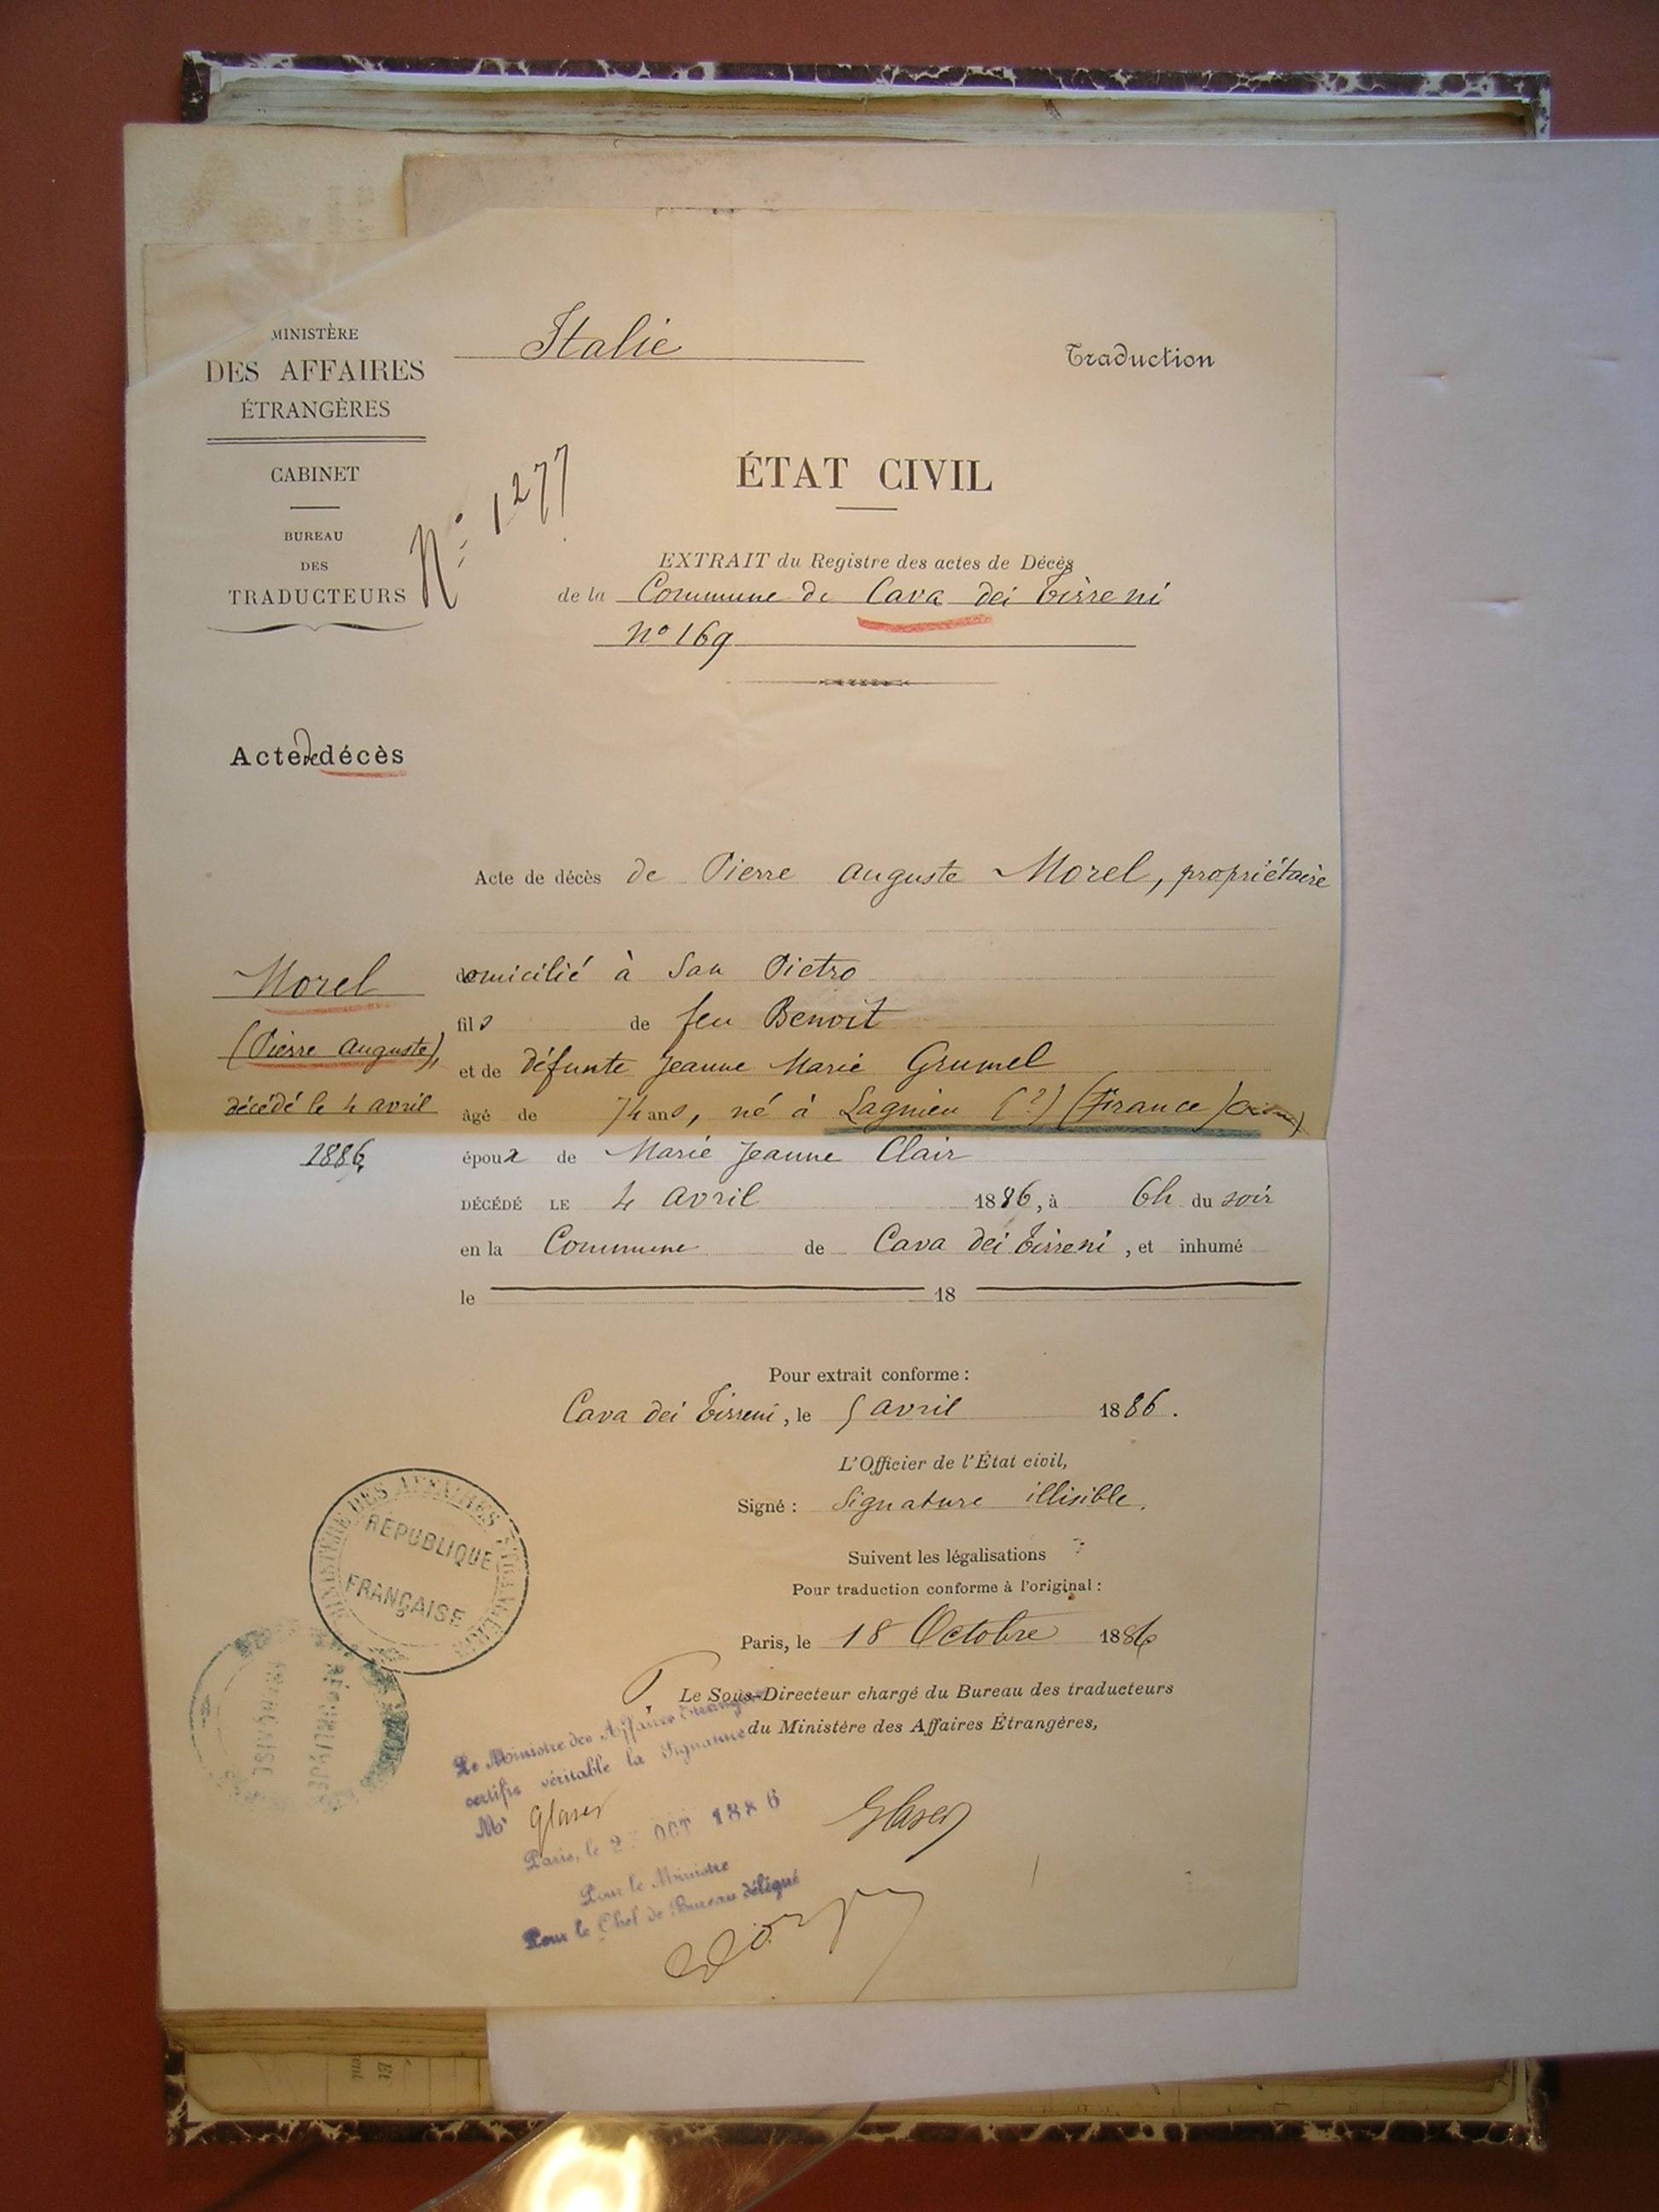 MINISTÈRE
DES AFFAIRES
ÉTRANGÈRES
CABINET
BUREAU
DES
TRADUCTEURS
Italie
Traduction
N° 1277
ÉTAT CIVIL
EXTRAIT du Registre des actes de Décès
de la Commune de Cava dei Tirreni
n° 169
Acte de décès
Acte de décès de Pierre Auguste Morel, propriétaire
Morel
(Pierre Auguste),
décédé le 4 avril
1886
domicilié à San Pietro
fils de feu Benoit
et de défunte Jeanne Marie Grumel
âgé de 74 ans, né à Lagnieu (?) (France)
époux de Marie Jeanne Clair
DÉCÉDÉ LE 4 avril 1886, à 6h du soir
en la Commune de Cava dei Tirreni, et inhumé
le 18
Pour extrait conforme :
Cava dei Tirreni, le 5 avril 1886.
L'Officier de l'État civil,
Signé : Signature illisible.
Suivent les légalisations
Pour traduction conforme à l'original :
Paris, le 18 Octobre 1886
P. Le Sous-Directeur chargé du Bureau des traducteurs
du Ministère des Affaires Étrangères,
Glaser
MINISTÈRE DES AFFAIRES ÉTRANGÈRES
RÉPUBLIQUE
FRANÇAISE
RÉPUBLIQUE
FRANÇAISE
Le Ministre des Affaires Étrangères
certifie véritable la signature
Mr Glaser
Paris, le OCT 1886
Pour le Ministre
Pour le Chef de Bureau délégué
Et